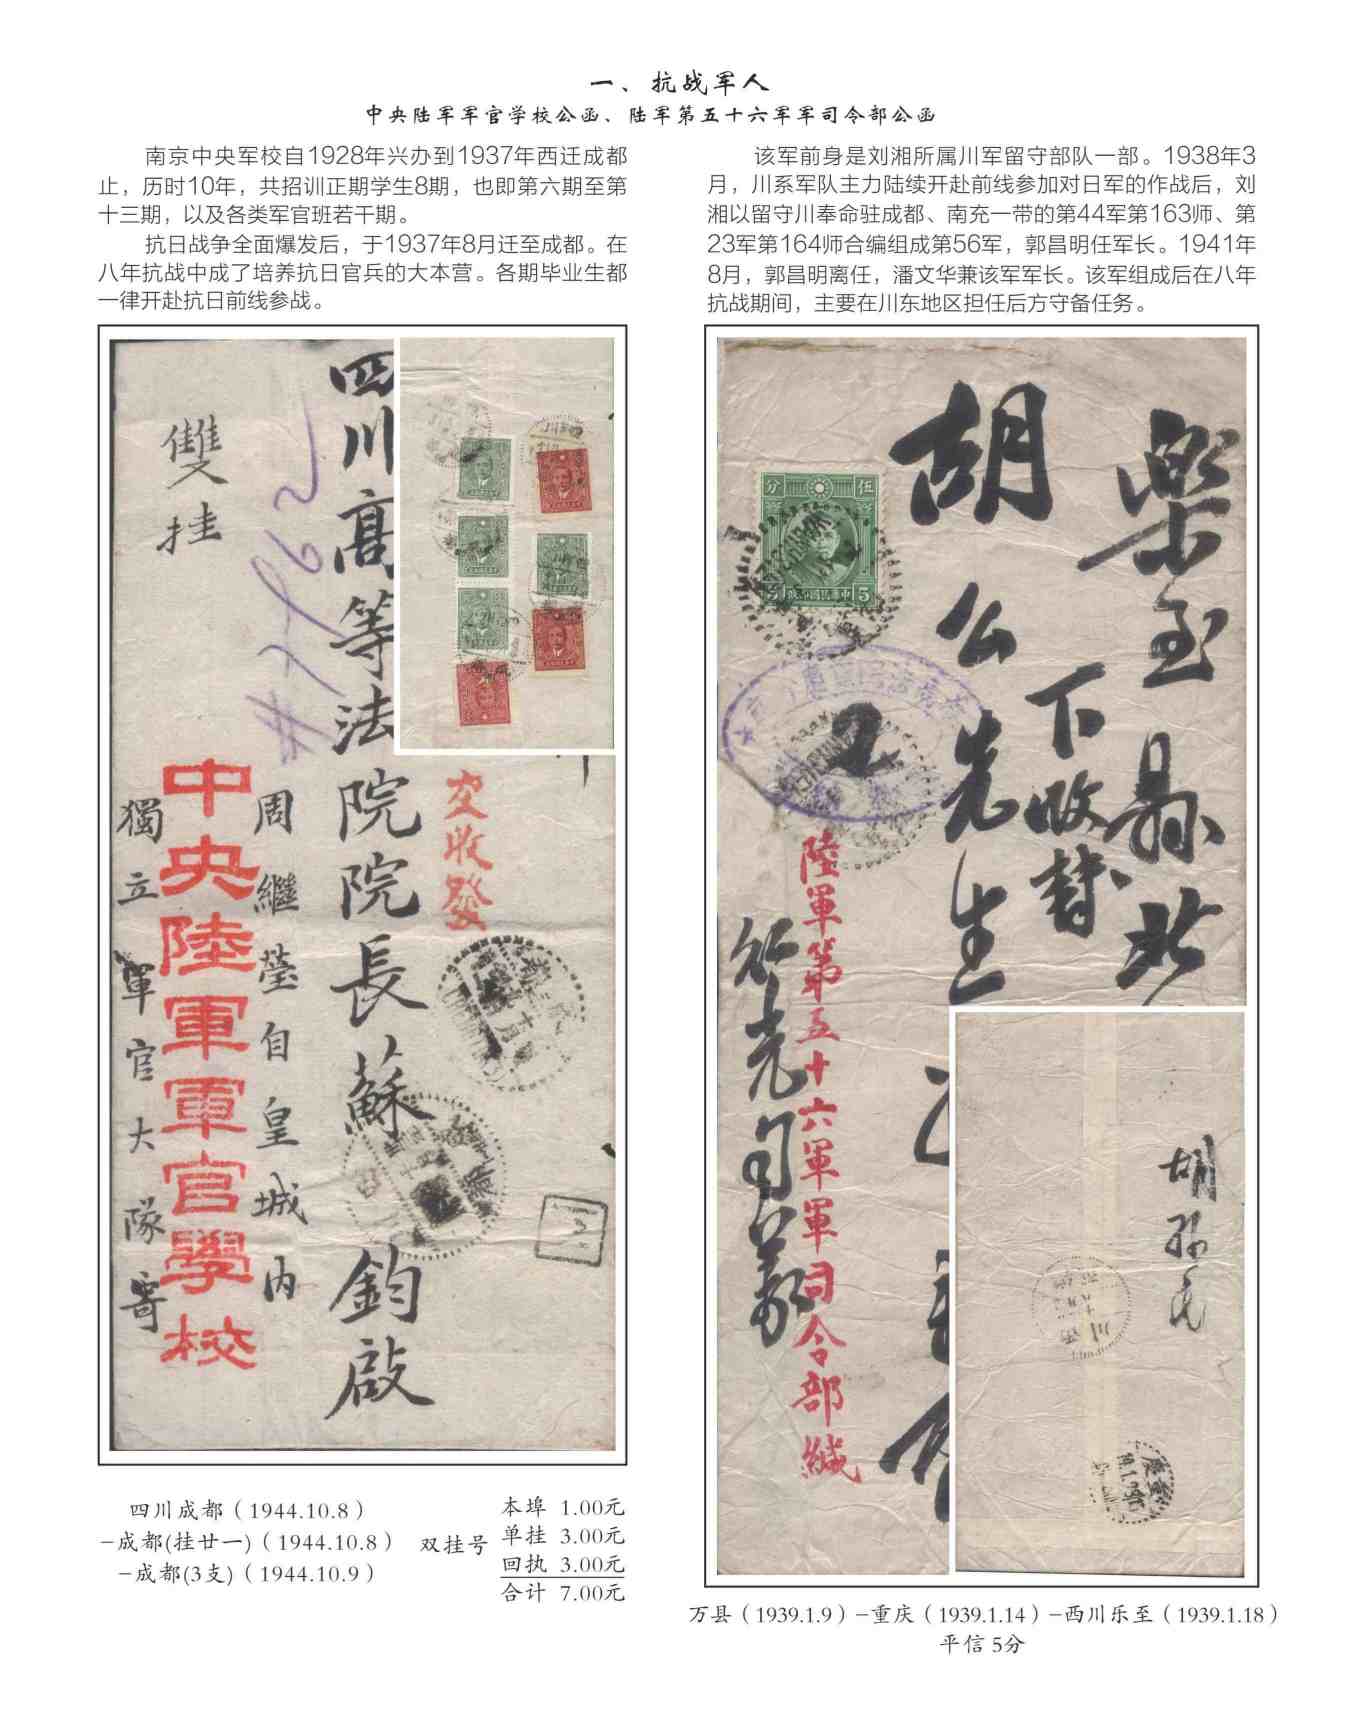 一、抗战军人
中央陆军军官学校公函、陆军第五十六军军司令部公函
南京中央军校自1928年兴办到1937年西迁成都
止，历时10年，共招训正期学生8期，也即第六期至第
十三期，以及各类军官班若干期。
抗日战争全面爆发后，于1937年8月迁至成都。在
八年抗战中成了培养抗日官兵的大本营。各期毕业生都
一律开赴抗日前线参战。
该军前身是刘湘所属川军留守部队一部。1938年3
月，川系军队主力陆续开赴前线参加对日军的作战后，刘
湘以留守川奉命驻成都、南充一带的第44军第163师、第
23军第164师合编组成第56军，郭昌明任军长。1941年
8月，郭昌明离任，潘文华兼该军军长。该军组成后在八年
抗战期间，主要在川东地区担任后方守备任务。
交收發
四川高等法院院長蘇 鈞啟
雙挂
周繼瑩自皇城内
中央陸軍軍官學校
獨立軍官大隊寄
樂至縣北
下收替
胡么先生
伍分
5
陸軍第五十六軍軍司令部緘
四川成都（1944.10.8）
–成都(挂廿一)（1944.10.8）
–成都(3支)（1944.10.9）
双挂号
本埠 1.00元
单挂 3.00元
回执 3.00元
合计 7.00元
万县（1939.1.9）–重庆（1939.1.14）–西川乐至（1939.1.18）
平信 5分